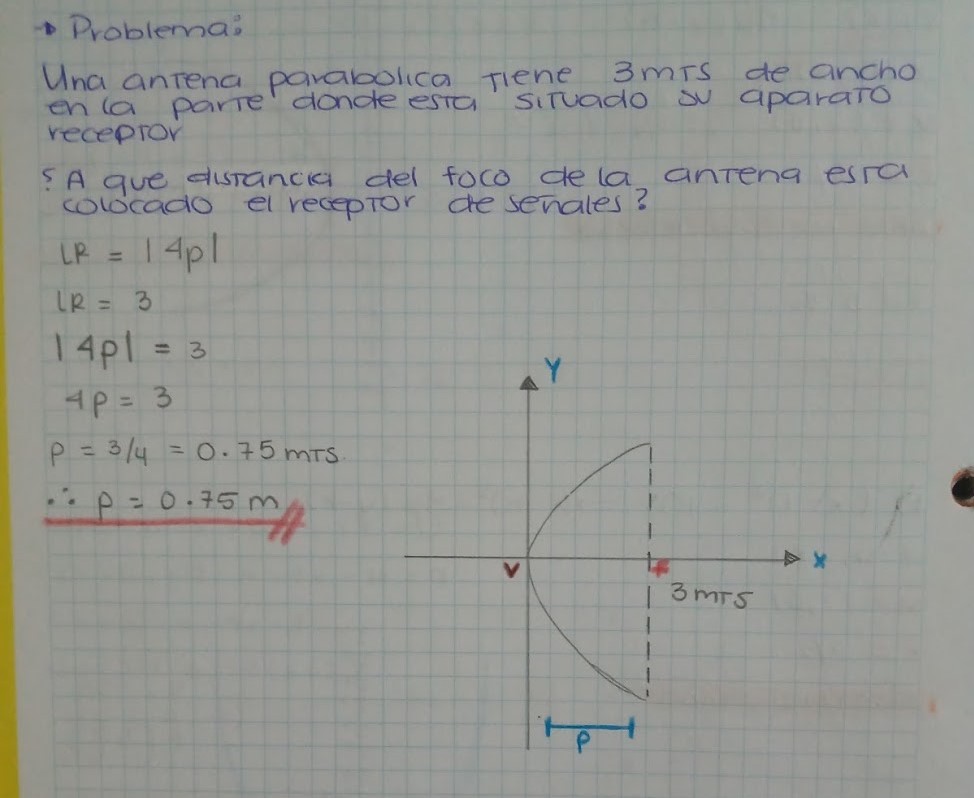 → Problema:
Una antena parabolica tiene 3mts de ancho
en la parte donde esta situado su aparato
receptor
¿A que distancia del foco de la antena esta
colocado el receptor de señales?
LR = |4p|
LR = 3
|4p| = 3
4p = 3
p = 3/4 = 0.75 mts.
∴ p = 0.75 m
Y
V
F
X
3 mts
P